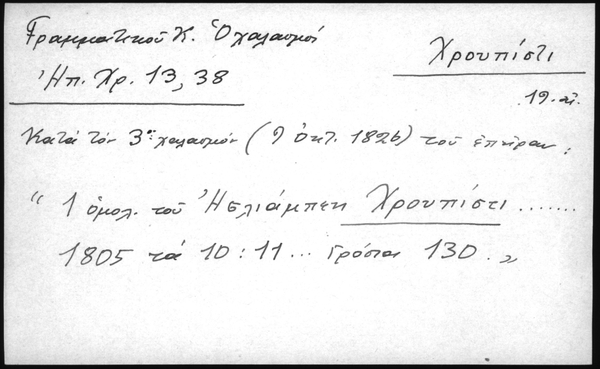 Γραμματικού Κ. Ὁ χαλασμοί
Χρουπίστι
Ἠπ. Χρ. 13, 38
19. αἰ.
Κατά τόν 3ον χαλασμόν (9 ὀκτ. 1826) τοῦ ἐπῆραν:
“ 1 ὁμολ. τοῦ Ἠελιάμπεη Χρουπίστι .......
1805 τά 10:11... Γρόσια 130. „